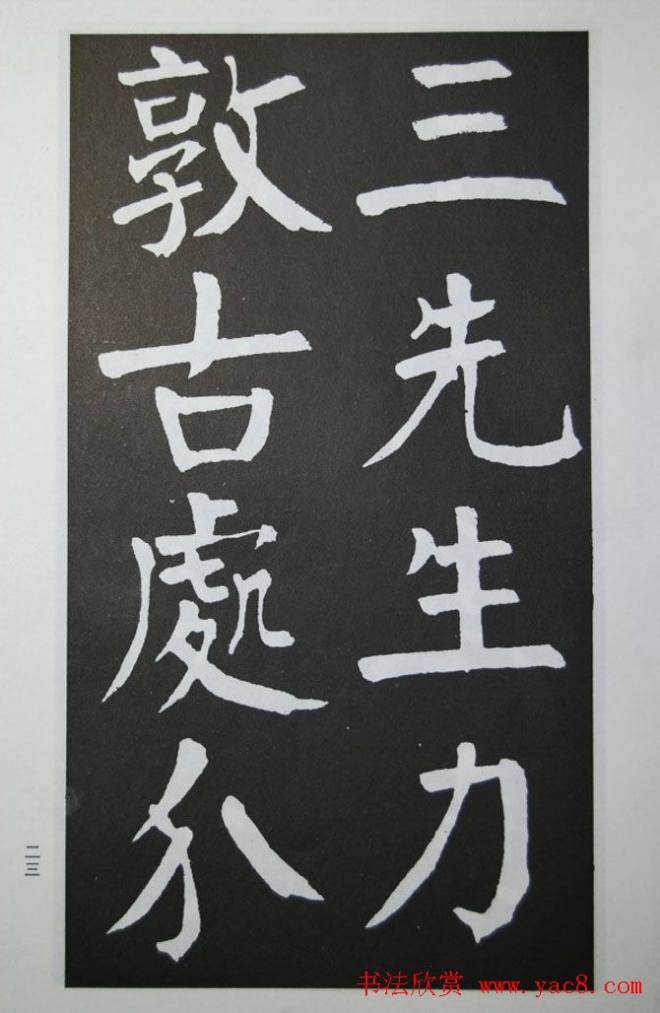 三先生力
敦古處分
书法欣赏 www.yac8.com